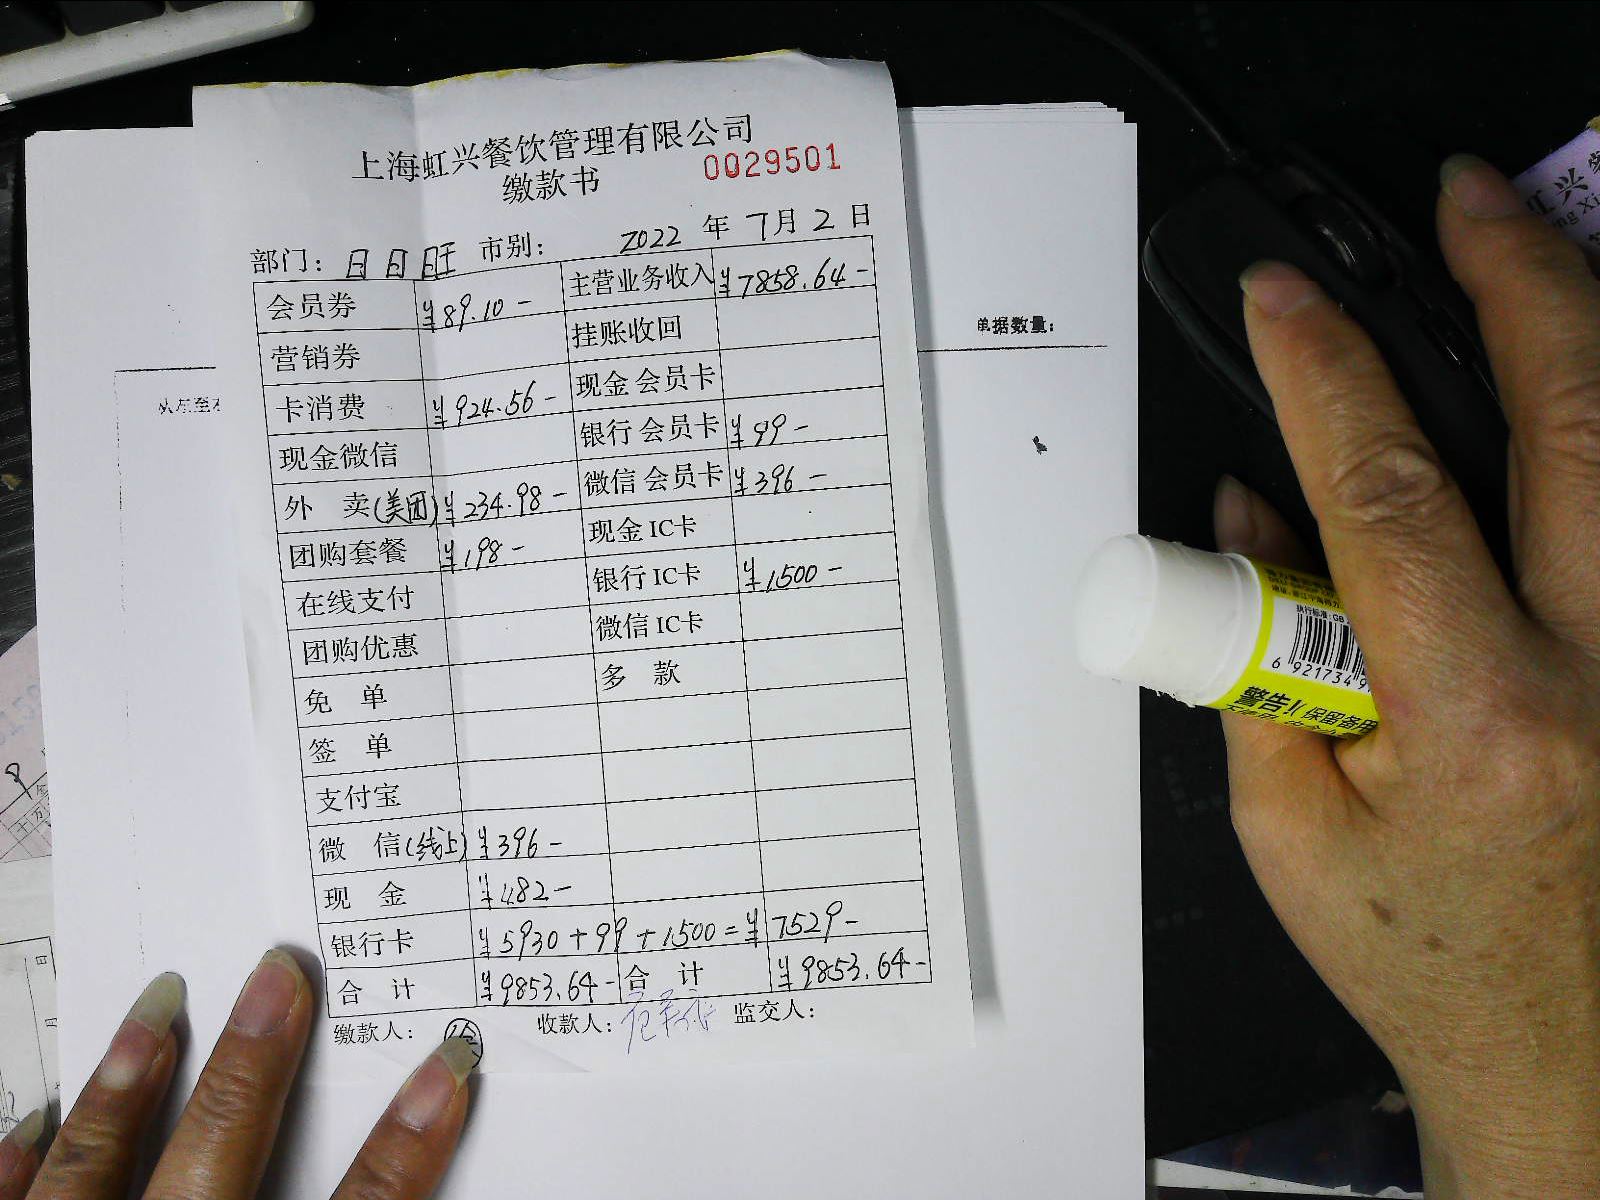 上海虹兴餐饮管理有限公司
缴款书 0029501
部门: 日日旺 市别: 2022 年 7月 2 日
会员券 ¥89.10- 主营业务收入 ¥7858.64-
营销券 挂账收回
卡消费 ¥924.56- 现金 会员卡
现金微信 银行 会员卡 ¥99-
外 卖(美团) ¥234.98- 微信 会员卡 ¥396-
团购套餐 ¥198- 现金 IC卡
在线支付 银行 IC卡 ¥1500-
团购优惠 微信 IC卡
免 单 多 款
签 单
支付宝
微 信(线上) ¥396-
现 金 ¥482-
银行卡 ¥5930+99+1500=¥7529-
合 计 ¥9853.64- 合 计 ¥9853.64-
缴款人: 收款人: 监交人:
单据数量:
从左至
执行标准: GB
6 921734 9
警告!( 保留备用
虹兴